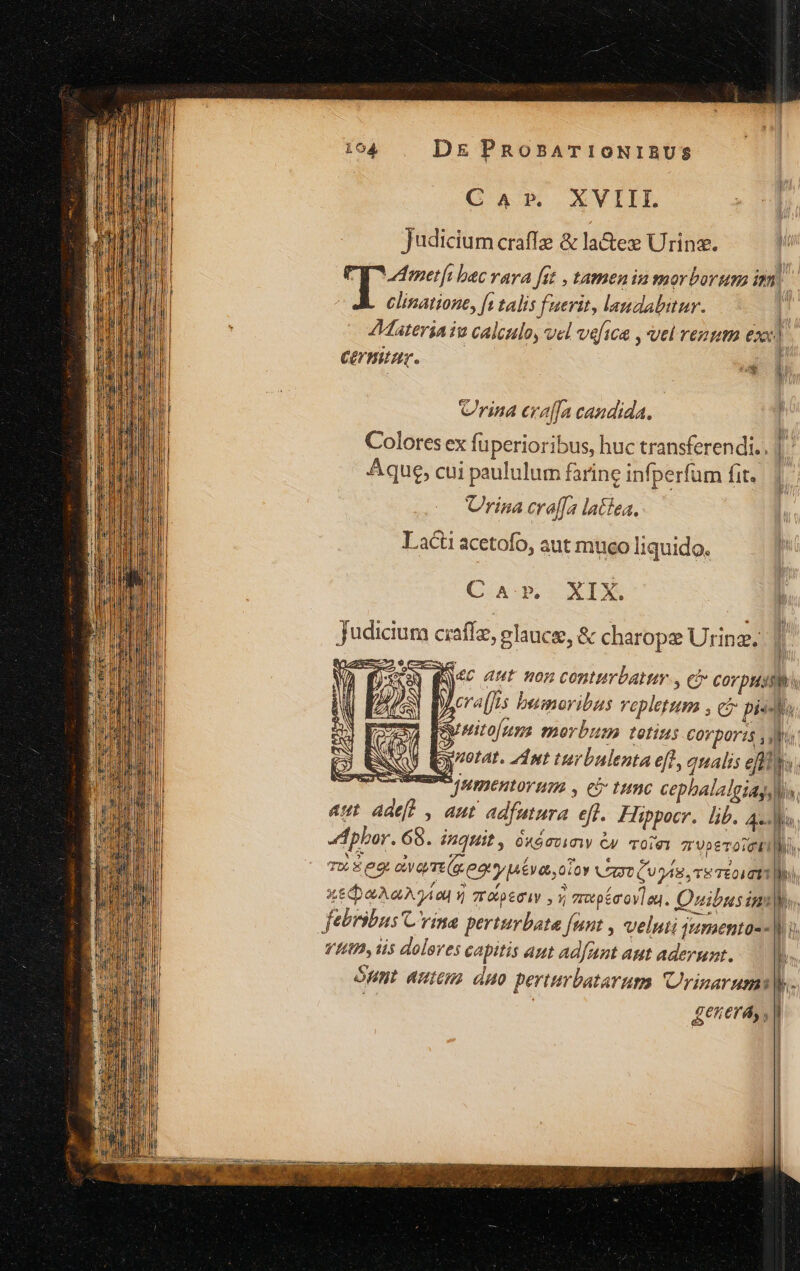 104 DE PROBATIONIBUS
CAP. XVIII.
Judicium crassæ & lacteæ Urinæ.
TAmetsi hæc rara sit, tamen in morborum in
clinatione, si talis fuerit, laudabitur.
Materia in calculo, vel vesica, vel renum ex
cernitur.
Urina crassa candida.
Colores ex superioribus, huc transferendi.
Aquę, cui paululum farinę inspersum sit.
Urina crassa lactea.
Lacti acetoso, aut muco liquido.
CAP. XIX.
Judicium crassæ, glaucæ, & charopæ Urinæ.
aut non conturbatur, & corpus
crassis humoribus repletum, &
tuitosum morbum totius corporis
notat. Aut turbulenta est, qualis est
jumentorum, & tunc cephalalgia
aut adest, aut adfutura est. Hippocr. lib. 4.
Aphor. 68. inquit, ὁκόσοισιν ἐν τοῖσι πυρετοῖσι
τὰ οὖρα ἀνατεταραγμένα, οἷον ὑποζυγίου, τουτέοισι
κεφαλαλγίαι ἢ πάρεισιν, ἢ παρέσονται. Quibus in
febribus Urinæ perturbatæ sunt, veluti jumento-
rum, iis dolores capitis aut adsunt aut aderunt.
Sunt autem duo perturbatarum Urinarum
genera,